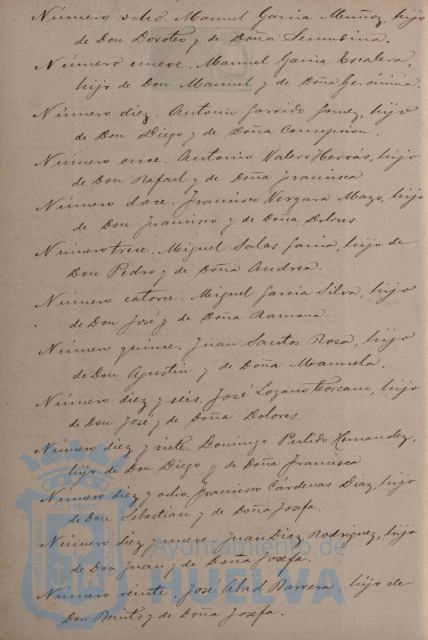 Número ocho. Manuel Garcia Muñoz, hijo
de Don Doroteo y de Doña Secundina.
Número nueve. Manuel Garcia Escalera,
hijo de Don Manuel y de Doña Gerónima.
Número diez. Antonio Garrido Gomez, hijo
de Don Diego y de Doña Concepcion.
Número once. Antonio Valero Herrás, hijo
de Don Rafael y de Doña Francisca
Número doce. Francisco Vergara Mazo, hijo
de Don Francisco y de Doña Dolores
Número trece. Miguel Salas Garcia, hijo de
Don Pedro y de Doña Andrea.
Número catorce. Miguel Garcia Silva, hijo
de Don José y de Doña Ramona.
Número quince. Juan Santos Rosa, hijo
de Don Agustin y de Doña Manuela.
Número diez y seis. José Lozano Toscano, hijo
de Don José y de Doña Dolores.
Número diez y siete. Domingo Pulido Hernandez,
hijo de Don Diego y de Doña Francisca
Número diez y ocho. Francisco Cárdenas Diaz, hijo
de Don Sebastian y de Doña Josefa.
Número diez y nueve. Juan Diaz Rodriguez, hijo
de Don Juan y de Doña Josefa.
Número veinte. José Abad Barrera, hijo de
Don Benito y de Doña Josefa.
Ayuntamiento de
HUELVA